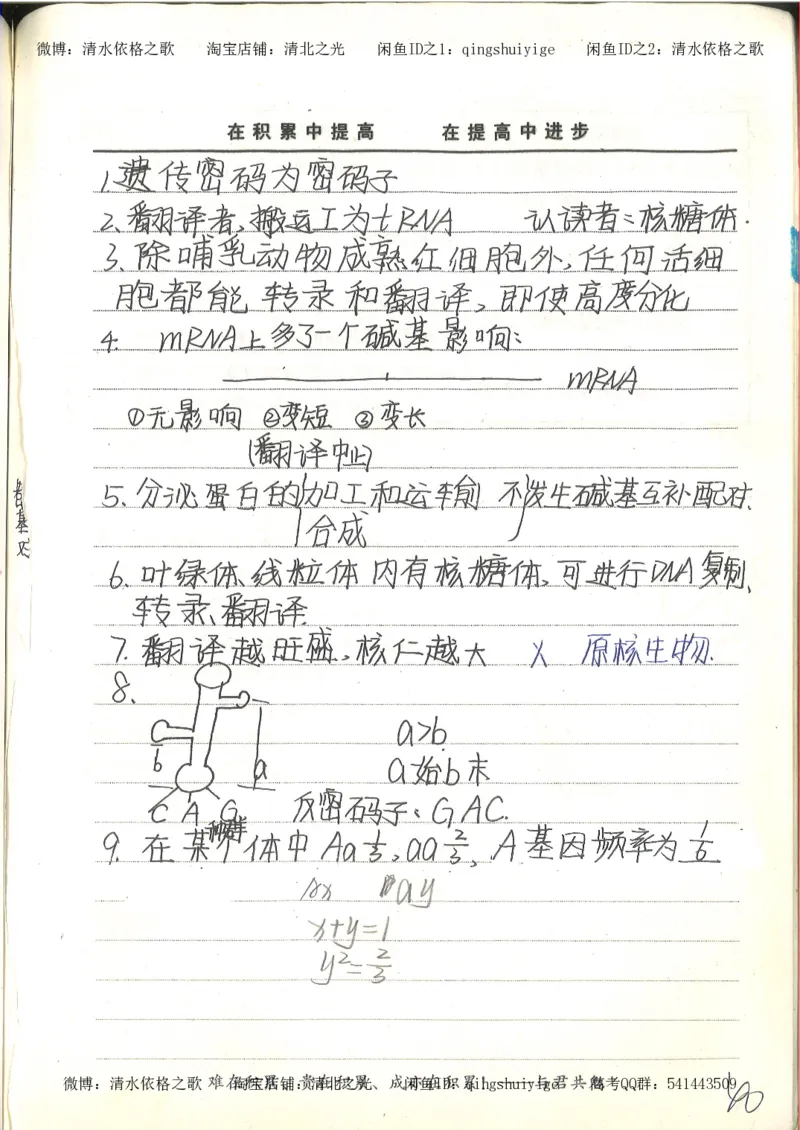 微博：清水依格之歌 淘宝店铺：清北之光 闲鱼ID之1：qingshuiyige 闲鱼ID之2：清水依格之歌
在积累中提高 在提高中进步
1.遗传密码为密码子
2.翻译者,搬运工为tRNA 认读者:核糖体.
3.除哺乳动物成熟红细胞外,任何活细
胞都能 转录和翻译,即使高度分化
4. mRNA上多了一个碱基影响:
mRNA
①无影响 ②变短 ③变长
(翻译中止)
5.分泌蛋白的加工和运输 不发生碱基互补配对.
合成
6.叶绿体、线粒体内有核糖体,可进行DNA复制、
转录、翻译.
7.翻译越旺盛,核仁越大 X 原核生物.
8.
a>b
b a a始b末
C A G 反密码子:GAC.
种群
9.在某个体中Aa 1/3,aa 2/3,A基因频率为1/6
Ax ay
x+y=1
y²=2/3
微博：清水依格之歌 淘宝店铺：清北之光 闲鱼ID：qingshuiyige 高考QQ群：541443509